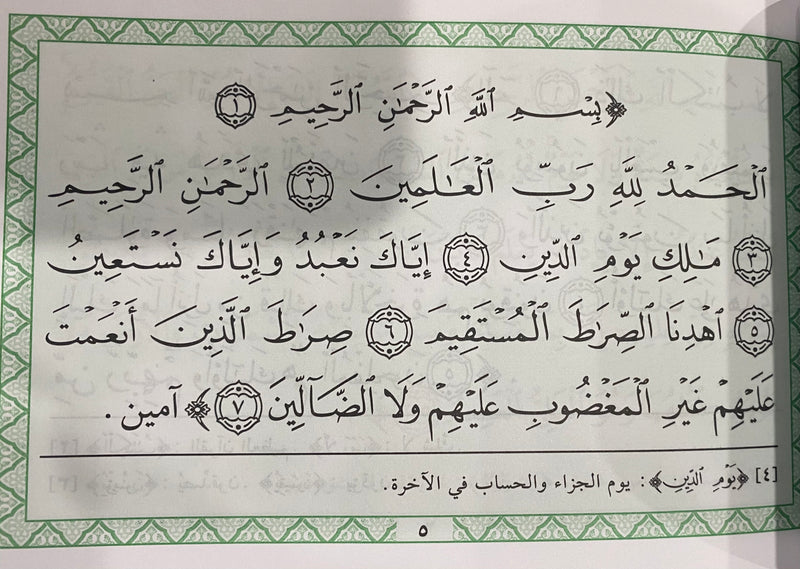 ﴿بِسْمِ ٱللَّهِ ٱلرَّحْمَٰنِ ٱلرَّحِيمِ ١
ٱلْحَمْدُ لِلَّهِ رَبِّ ٱلْعَٰلَمِينَ ٢ ٱلرَّحْمَٰنِ ٱلرَّحِيمِ
٣ مَٰلِكِ يَوْمِ ٱلدِّينِ ٤ إِيَّاكَ نَعْبُدُ وَإِيَّاكَ نَسْتَعِينُ
٥ ٱهْدِنَا ٱلصِّرَٰطَ ٱلْمُسْتَقِيمَ ٦ صِرَٰطَ ٱلَّذِينَ أَنْعَمْتَ
عَلَيْهِمْ غَيْرِ ٱلْمَغْضُوبِ عَلَيْهِمْ وَلَا ٱلضَّآلِّينَ ٧﴾ آمين .
[٤] ﴿يَوْمِ ٱلدِّينِ﴾: يوم الجزاء والحساب في الآخرة.
٥